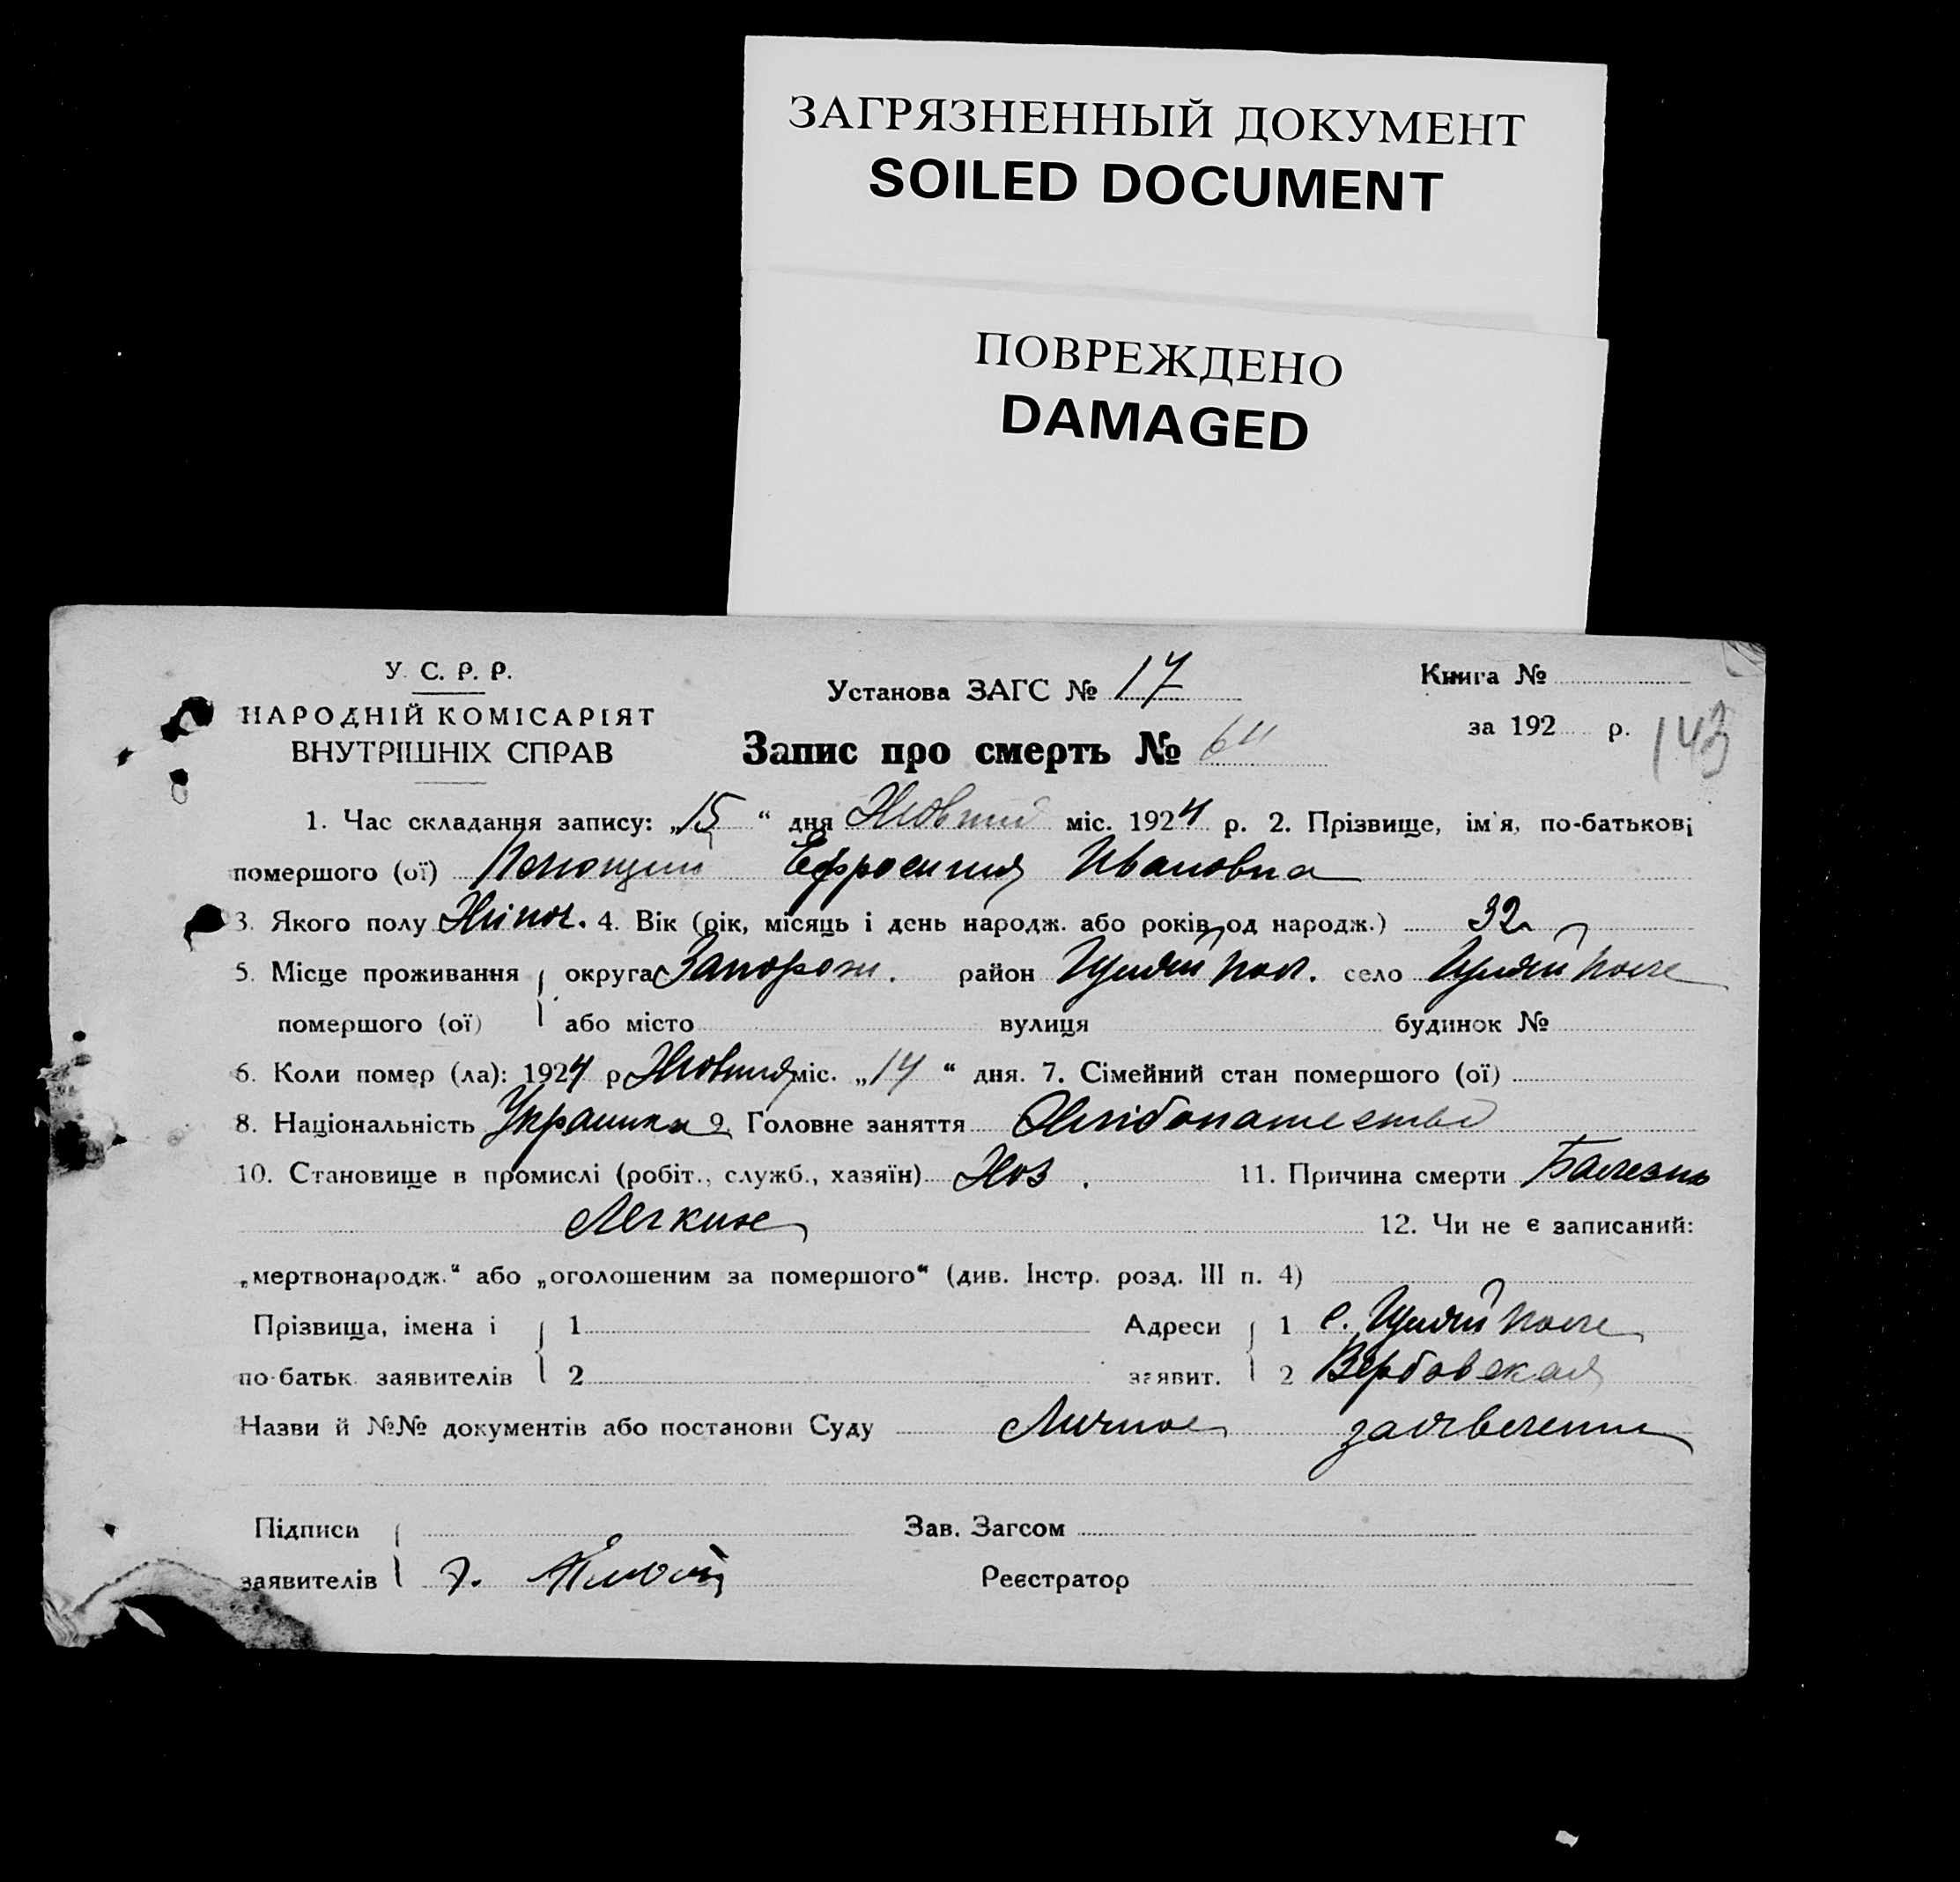 ЗАГРЯЗНЕННЫЙ ДОКУМЕНТ
SOILED DOCUMENT
ПОВРЕЖДЕНО
DAMAGED
У. С. Р. Р.
НАРОДНІЙ КОМІСАРІЯТ
ВНУТРІШНІХ СПРАВ
Установа ЗАГС № 17
Запис про смерть №
Книга №
за 192 р.
143
1. Час складання запису: „15“ дня міс. 1924 р. 2. Прізвище, ім'я, по-батькові
помершого (ої) Ефросиния Ивановна
3. Якого полу Жіноч. 4. Вік (рік, місяць і день народж. або років од народж.) 32
5. Місце проживання округа Запорож. район Гуляй пол. село Гуляй поле
помершого (ої) або місто вулиця будинок №
6. Коли помер (ла): 1924 р Жовтня міс. „14“ дня. 7. Сімейний стан помершого (ої)
8. Національність Украинка 9. Головне заняття Хлібопашество
10. Становище в промислі (робіт., служб., хазяїн) Хоз. 11. Причина смерти Болезнь
Легких 12. Чи не є записаний:
„мертвонародж.“ або „оголошеним за помершого“ (див. Інстр. розд. III п. 4)
Прізвища, імена і 1 Адреси 1 с. Гуляй поле
по-батьк. заявителів 2 заявит. 2 Вербовская
Назви й №№ документів або постанови Суду Личное заявление
Підписи Зав. Загсом
заявителів Реєстратор